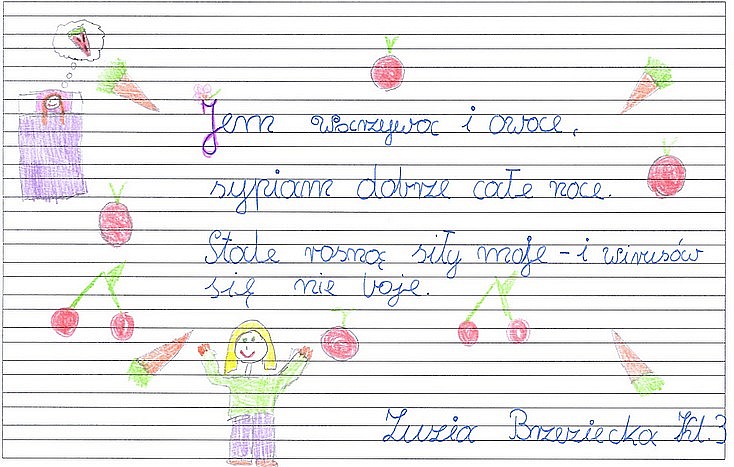 Jem warzywa i owoce,
sypiam dobrze całe noce.
Stale rosną siły moje - i wirusów
się nie boje.
Zuzia Brzeziecka Kl.3